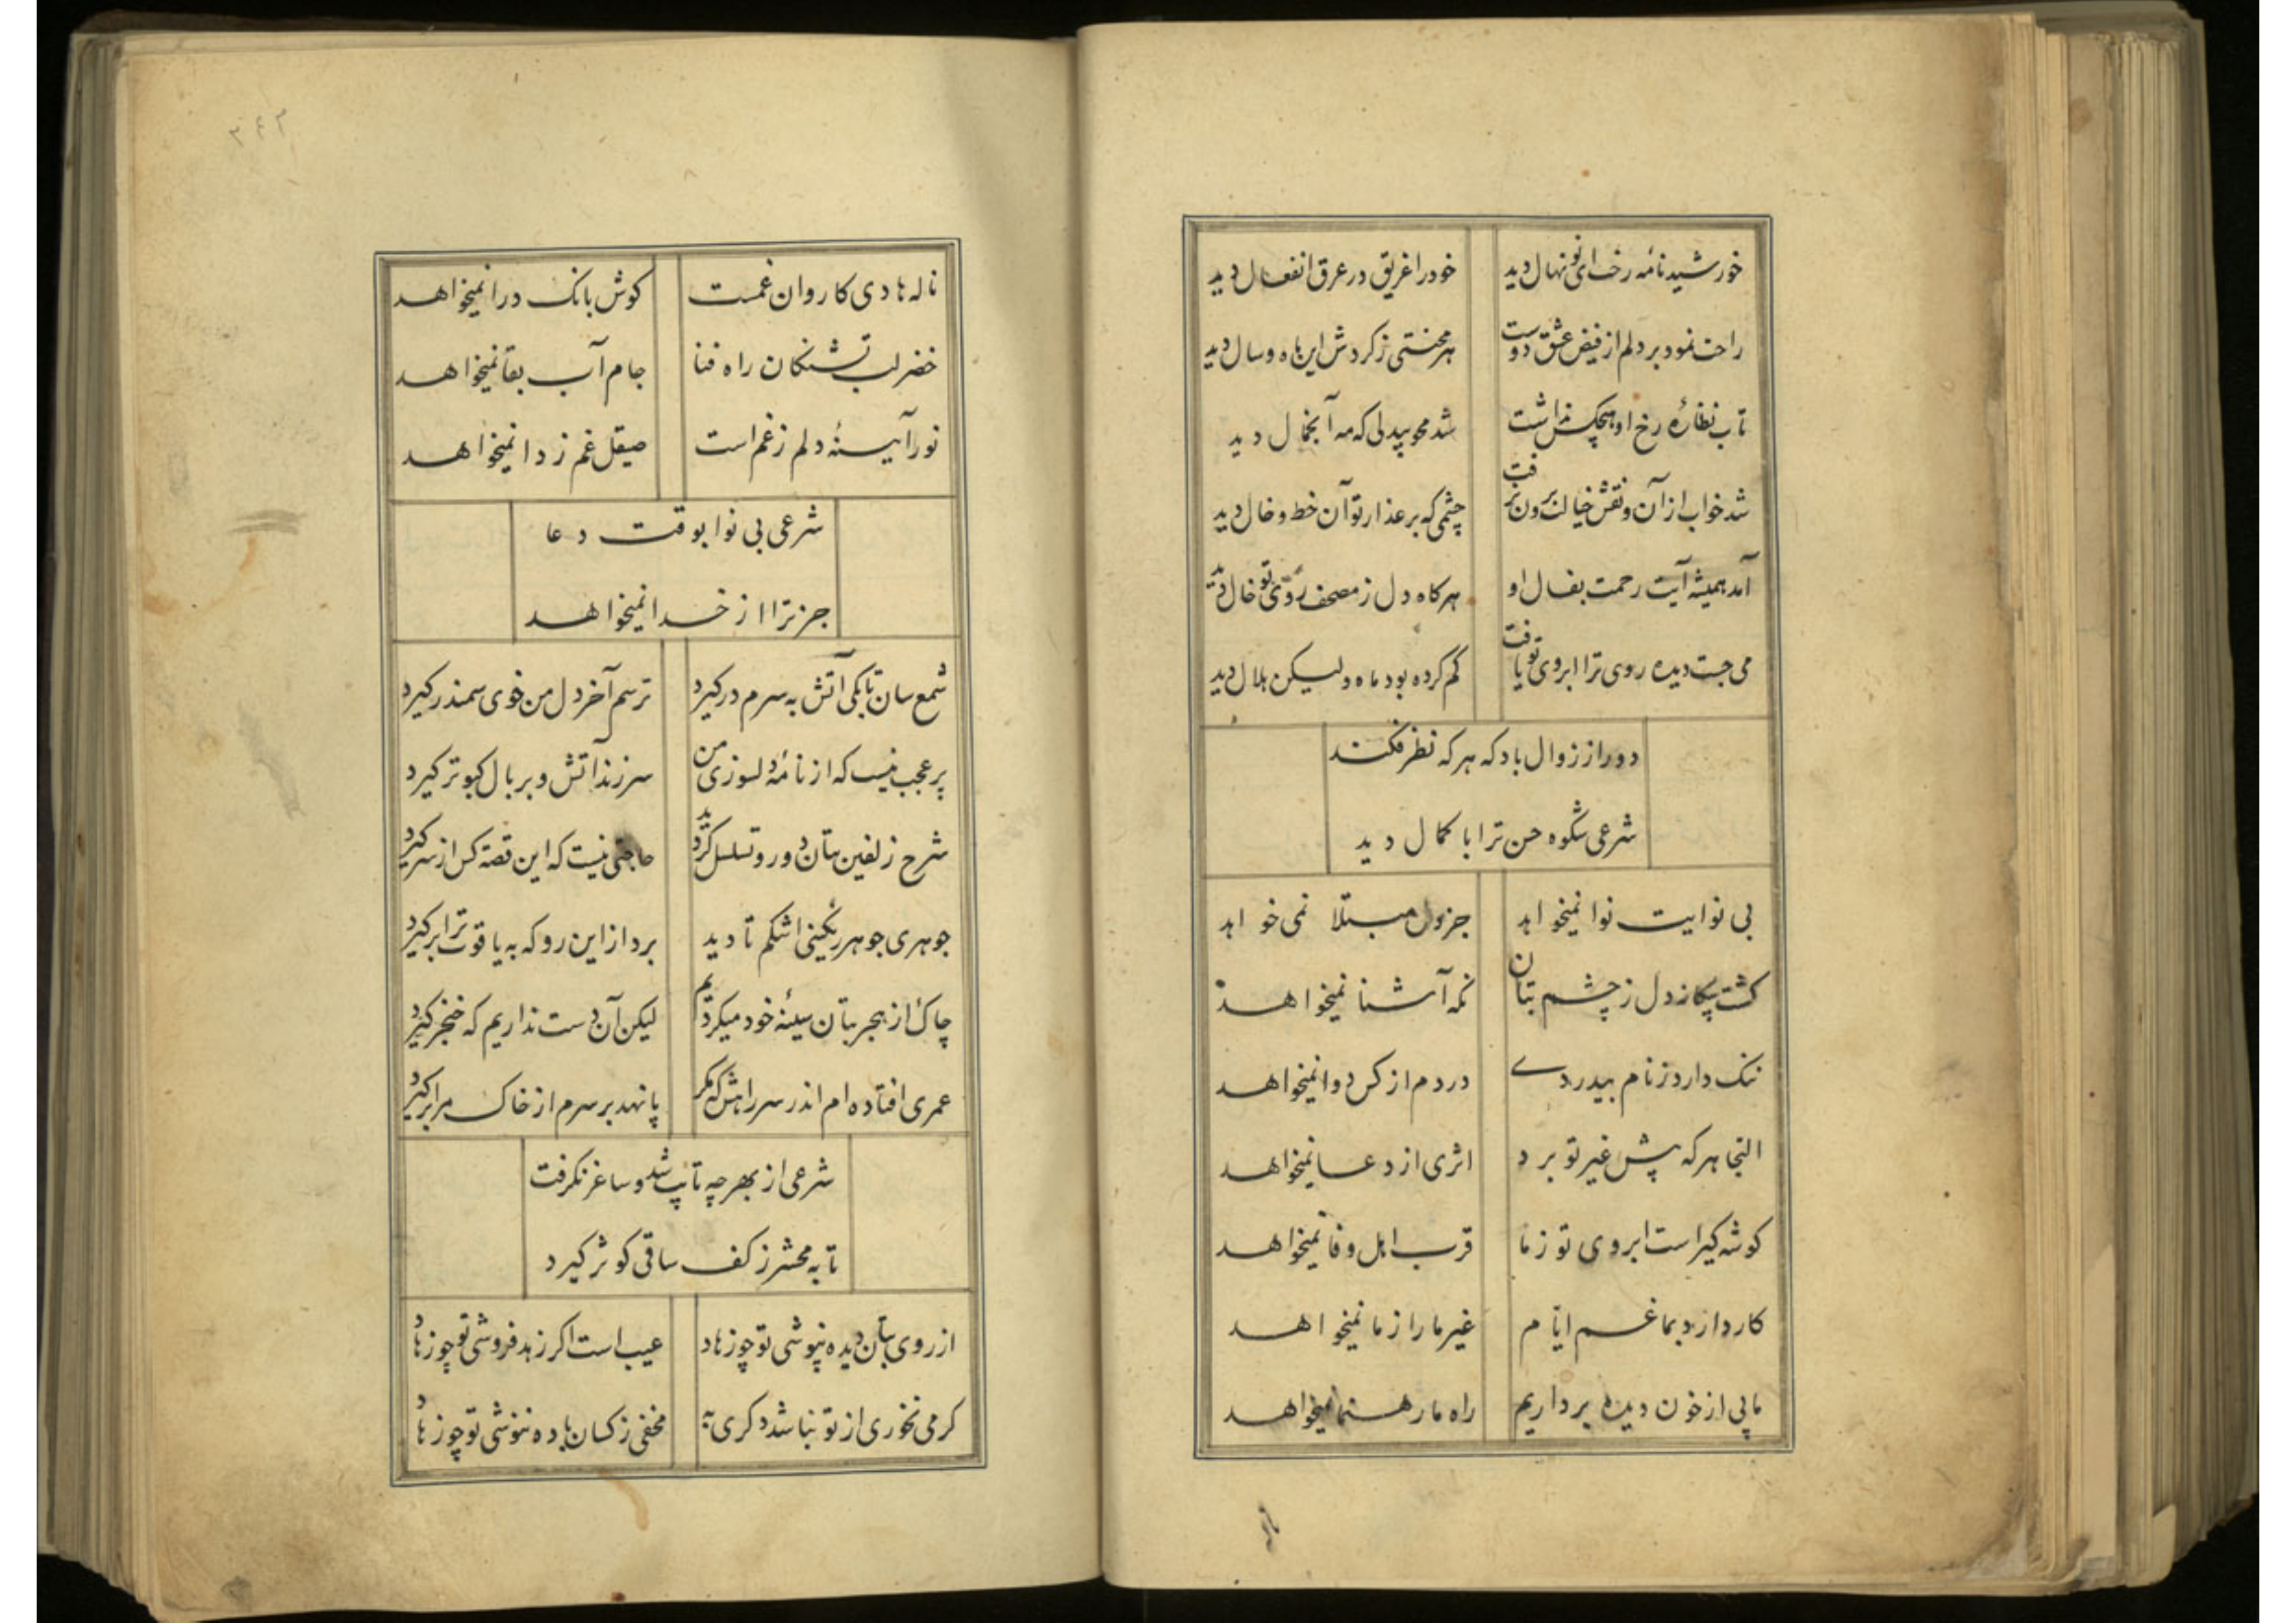 خورشید نامه رخت ای نو نهال دید
خود را غریق در عرق انفعال دید
راحت نمود بر دلم از فیض عشق دوست
هر محنتی ز کردش این ماه و سال دید
تاب نظارهٔ رخ او هیچکس نداشت
شد محو بیدلی که مه آنجمال دید
شد خواب از آن و نقش خیالت برون نرفت
چشمی که بر عذار تو آن خط و خال دید
آمد همیشه آیت رحمت بفال او
هر کاه دل ز مصحف روی تو خال دید
می جست دیده روی ترا ابروی تو یافت
کم کرده بود ماه ولیکن هلال دید
دور از زوال باد که هر که نظر فکند
شرعی شکوه حسن ترا با کمال دید
بی نوایت نوا نمیخواهد
جز دل مبتلا نمی خواهد
کشت بیکانه دل ز چشم بتان
نکه آشنا نمیخواهد
ننک دارد ز نام بیدردے
دردم از کس دوا نمیخواهد
التجا هر که پیش غیر تو برد
اثری از دعا نمیخواهد
کوشه کیر است ابروی تو ز ما
قرب اهل وفا نمیخواهد
کار دارد بما غم ایّام
غیر ما را ز ما نمیخواهد
ما پی از خون دیده برداریم
راه ما رهنما نمیخواهد
۳۶۳
ناله هادی کاروان غمست
کوش بانک درا نمیخواهد
خضر لب تشنکان راه فنا
جام آب بقا نمیخواهد
نور آیینهٔ دلم ز غم است
صیقل غم زدا نمیخواهد
شرعی بی نوا بوقت دعا
جز ترا از خدا نمیخواهد
شمع سان تا بکی آتش به سرم درکیرد
ترسم آخر دل من خوی سمندر کیرد
پر عجب نیست که از نامهٔ دلسوزی من
سر زند آتش و بر بال کبوتر کیرد
شرح زلفین بتان دور و تسلسل کردید
حاجتی نیست که این قصّه کس از سر کیرد
جوهری جوهر رنکینی اشکم تا دید
برد از این رو که به یاقوت ترا بر کیرد
چاک از هجر بتان سینهٔ خود میکردیم
لیکن آن دست نداریم که خنجر کیرد
عمری افتاده ام اندر سر راهش که مکر
پا نهد بر سرم از خاک مرا بر کیرد
شرعی از بهر چه تایب شد و ساغر نکرفت
تا به محشر ز کف ساقی کوثر کیرد
از روی بتان دیده بپوشی تو چو زهاد
عیب است اکر زهد فروشی تو چو زهاد
کر می نخوری از تو نباشد دکری به
مخفی ز کسان باده ننوشی تو چو زهاد